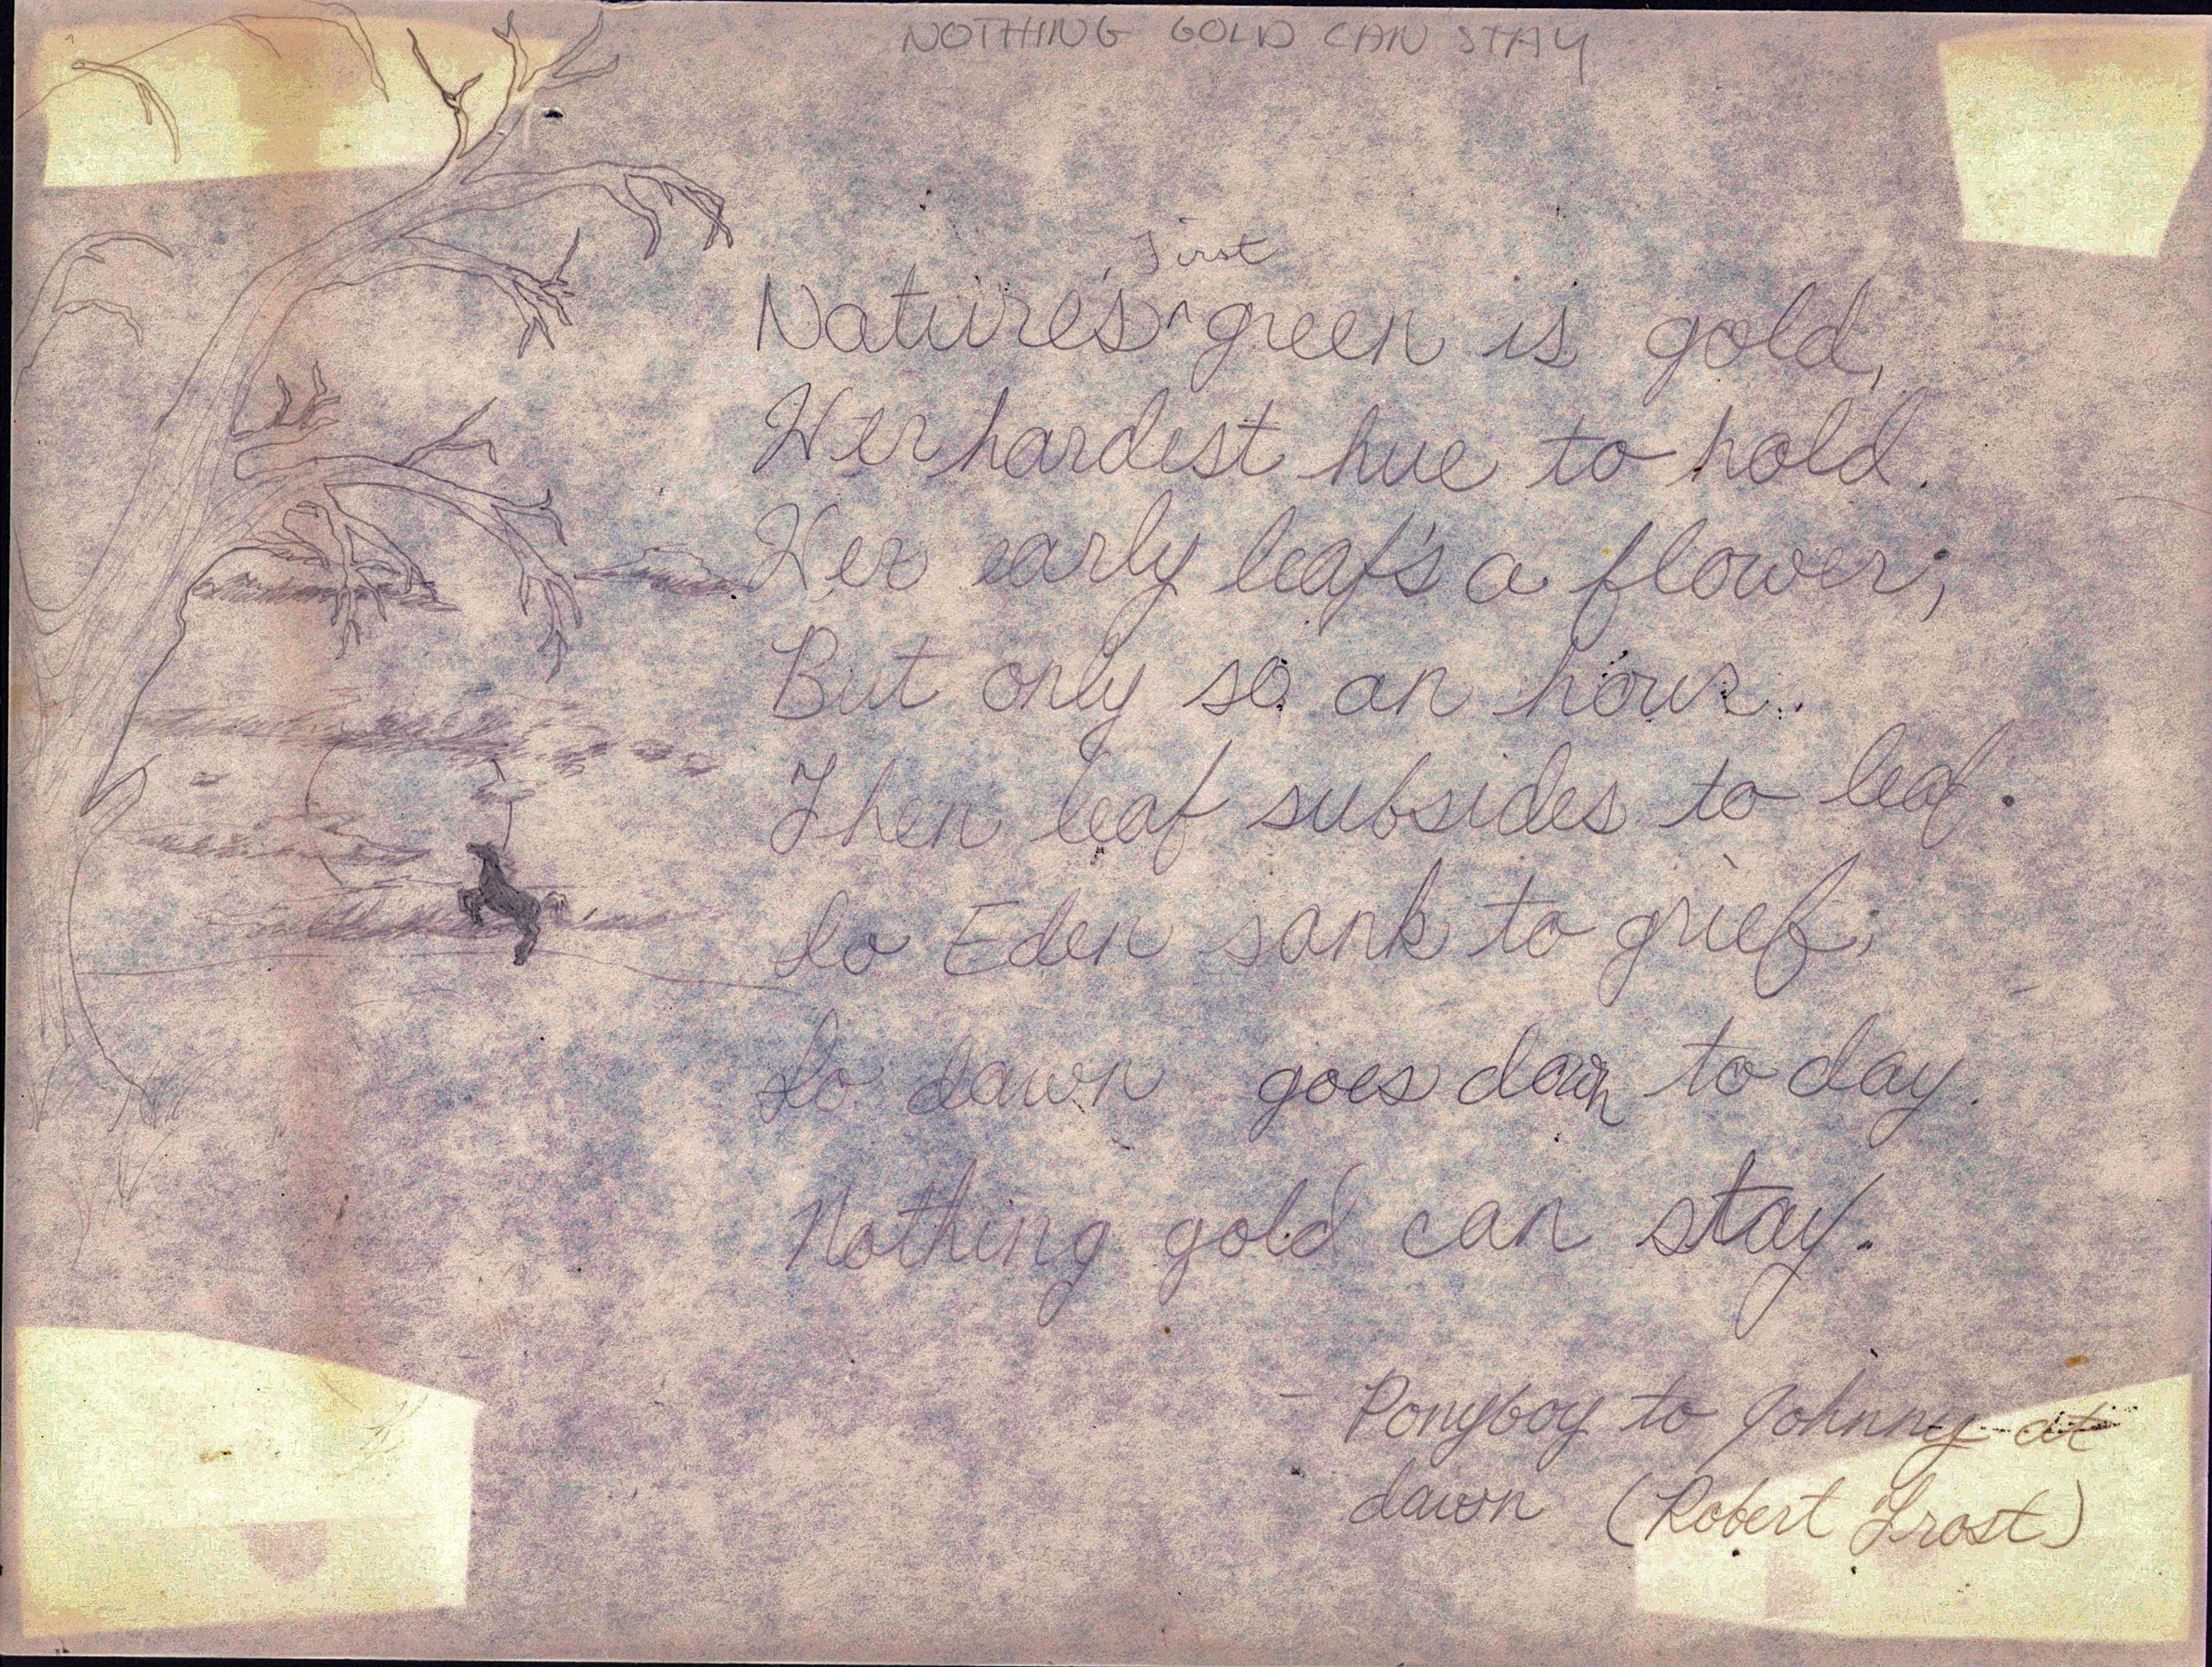 NOTHING GOLD CAN STAY
First
Nature's ^ green is gold,
Her hardest hue to hold.
Her early leaf's a flower;
But only so an hour.
Then leaf subsides to leaf.
So Eden sank to grief;
So dawn goes down to day.
Nothing gold can stay.
- Ponyboy to Johnny at
dawn (Robert Frost)